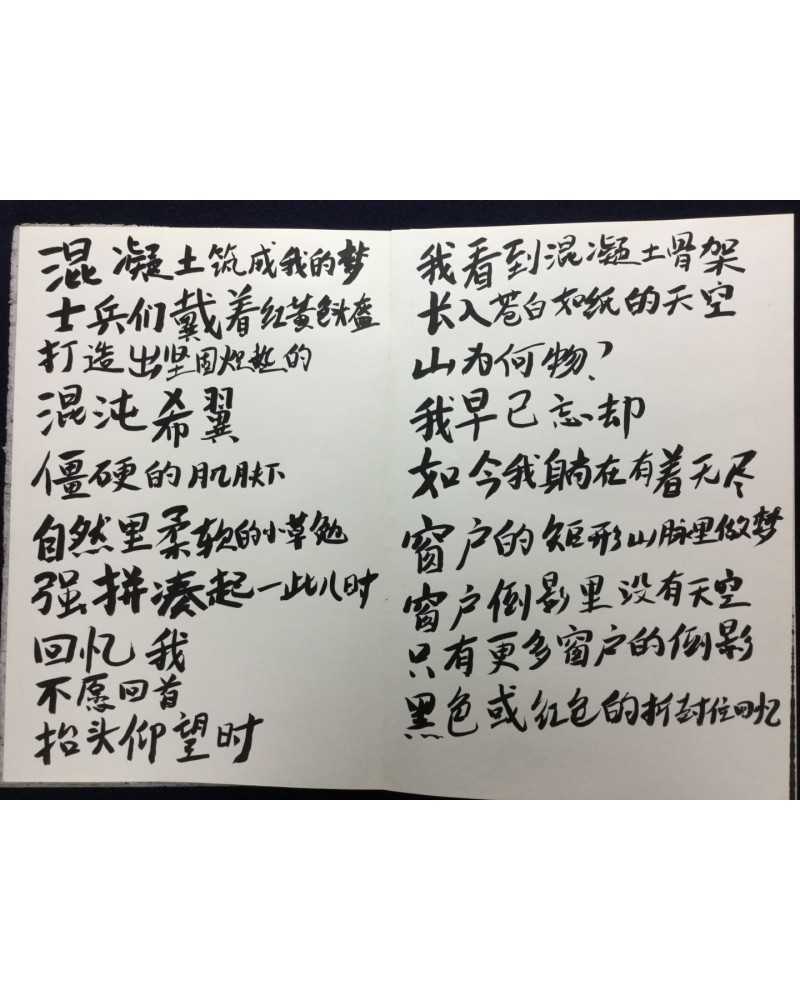 混凝土筑成我的梦
士兵们戴着红黄色头盔
打造出坚固炽热的
混沌希翼
僵硬的肌肤下
自然里柔软的小草勉
强拼凑起一些儿时
回忆我
不愿回首
抬头仰望时
我看到混凝土骨架
长入苍白如纸的天空
山为何物?
我早已忘却
如今我躺在有着无尽
窗户的矩形山脉里做梦
窗户倒影里没有天空
只有更多窗户的倒影
黑色或红色的折封住回忆